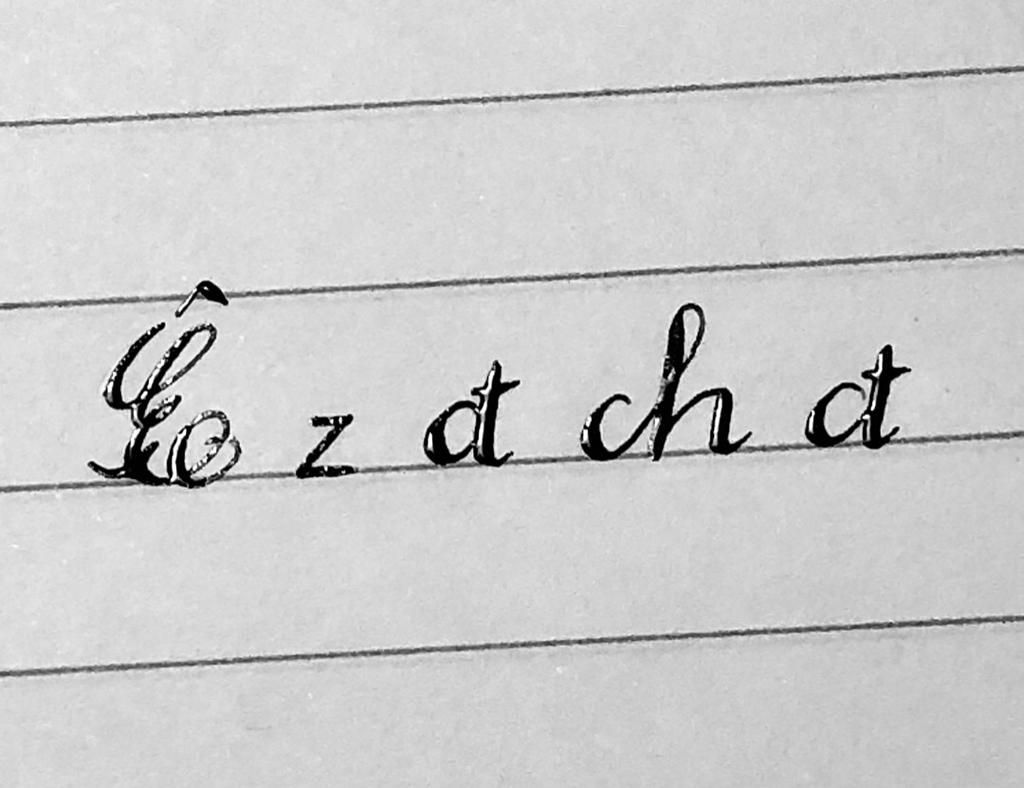 Ê z đ ch đ